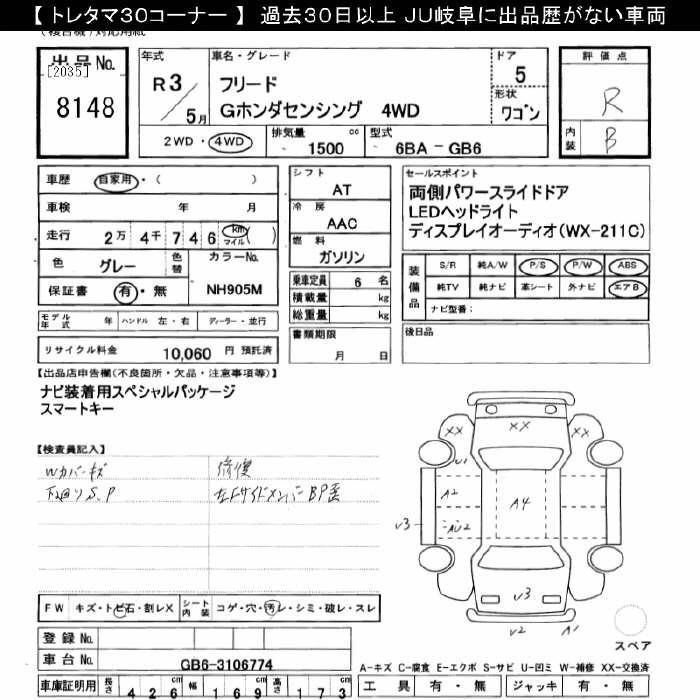 【 トレタマ30コーナー 】 過去30日以上 JU岐阜に出品歴がない車両
出品No.
[2035]
8148
年式
R3
5月
車名・グレード
フリード
Gホンダセンシング 4WD
ドア
5
形状
ワゴン
評価点
R
内装
B
2WD ・ 4WD
排気量
1500 cc
型式
6BA - GB6
車歴 自家用 ・ ( )
車検 年 月
走行 2万 4千 7 4 6 km マイル ( )
色 グレー 色替 カラーNo.
保証書 有 ・ 無 NH905M
シフト
AT
冷房
AAC
燃料
ガソリン
乗車定員 6 名
積載量 kg
総重量 kg
書類期限
月 日
セールスポイント
両側パワースライドドア
LEDヘッドライト
ディスプレイオーディオ(WX-211C)
装備品
S/R 純A/W P/S P/W ABS
純TV 純ナビ 革シート 外ナビ エアB
ナビ型番:
後日品
モデル年式 年 ハンドル 左・右 ディーラー・並行
リサイクル料金 10,060 円 預託済
【出品店申告欄(不良箇所・欠品・注意事項等)】
ナビ装着用スペシャルパッケージ
スマートキー
【検査員記入】
Wカバーキズ
S.P
修復
左Fサイドメンバー BP歪
XX XX XX
U1
A2
A4
AU2
V3
V3
V2 A1
スペア
FW キズ・トビ石・割レX シート内装 コゲ・穴・汚レ・シミ・破レ・スレ
登録No.
車台No. GB6-3106774
車庫証明用 長さ 4 2 6 幅 1 6 9 高さ 1 7 3
A-キズ C-腐食 E-エクボ S-サビ U-凹ミ W-補修 XX-交換済
工具 有 ・ 無 ジャッキ 有 ・ 無